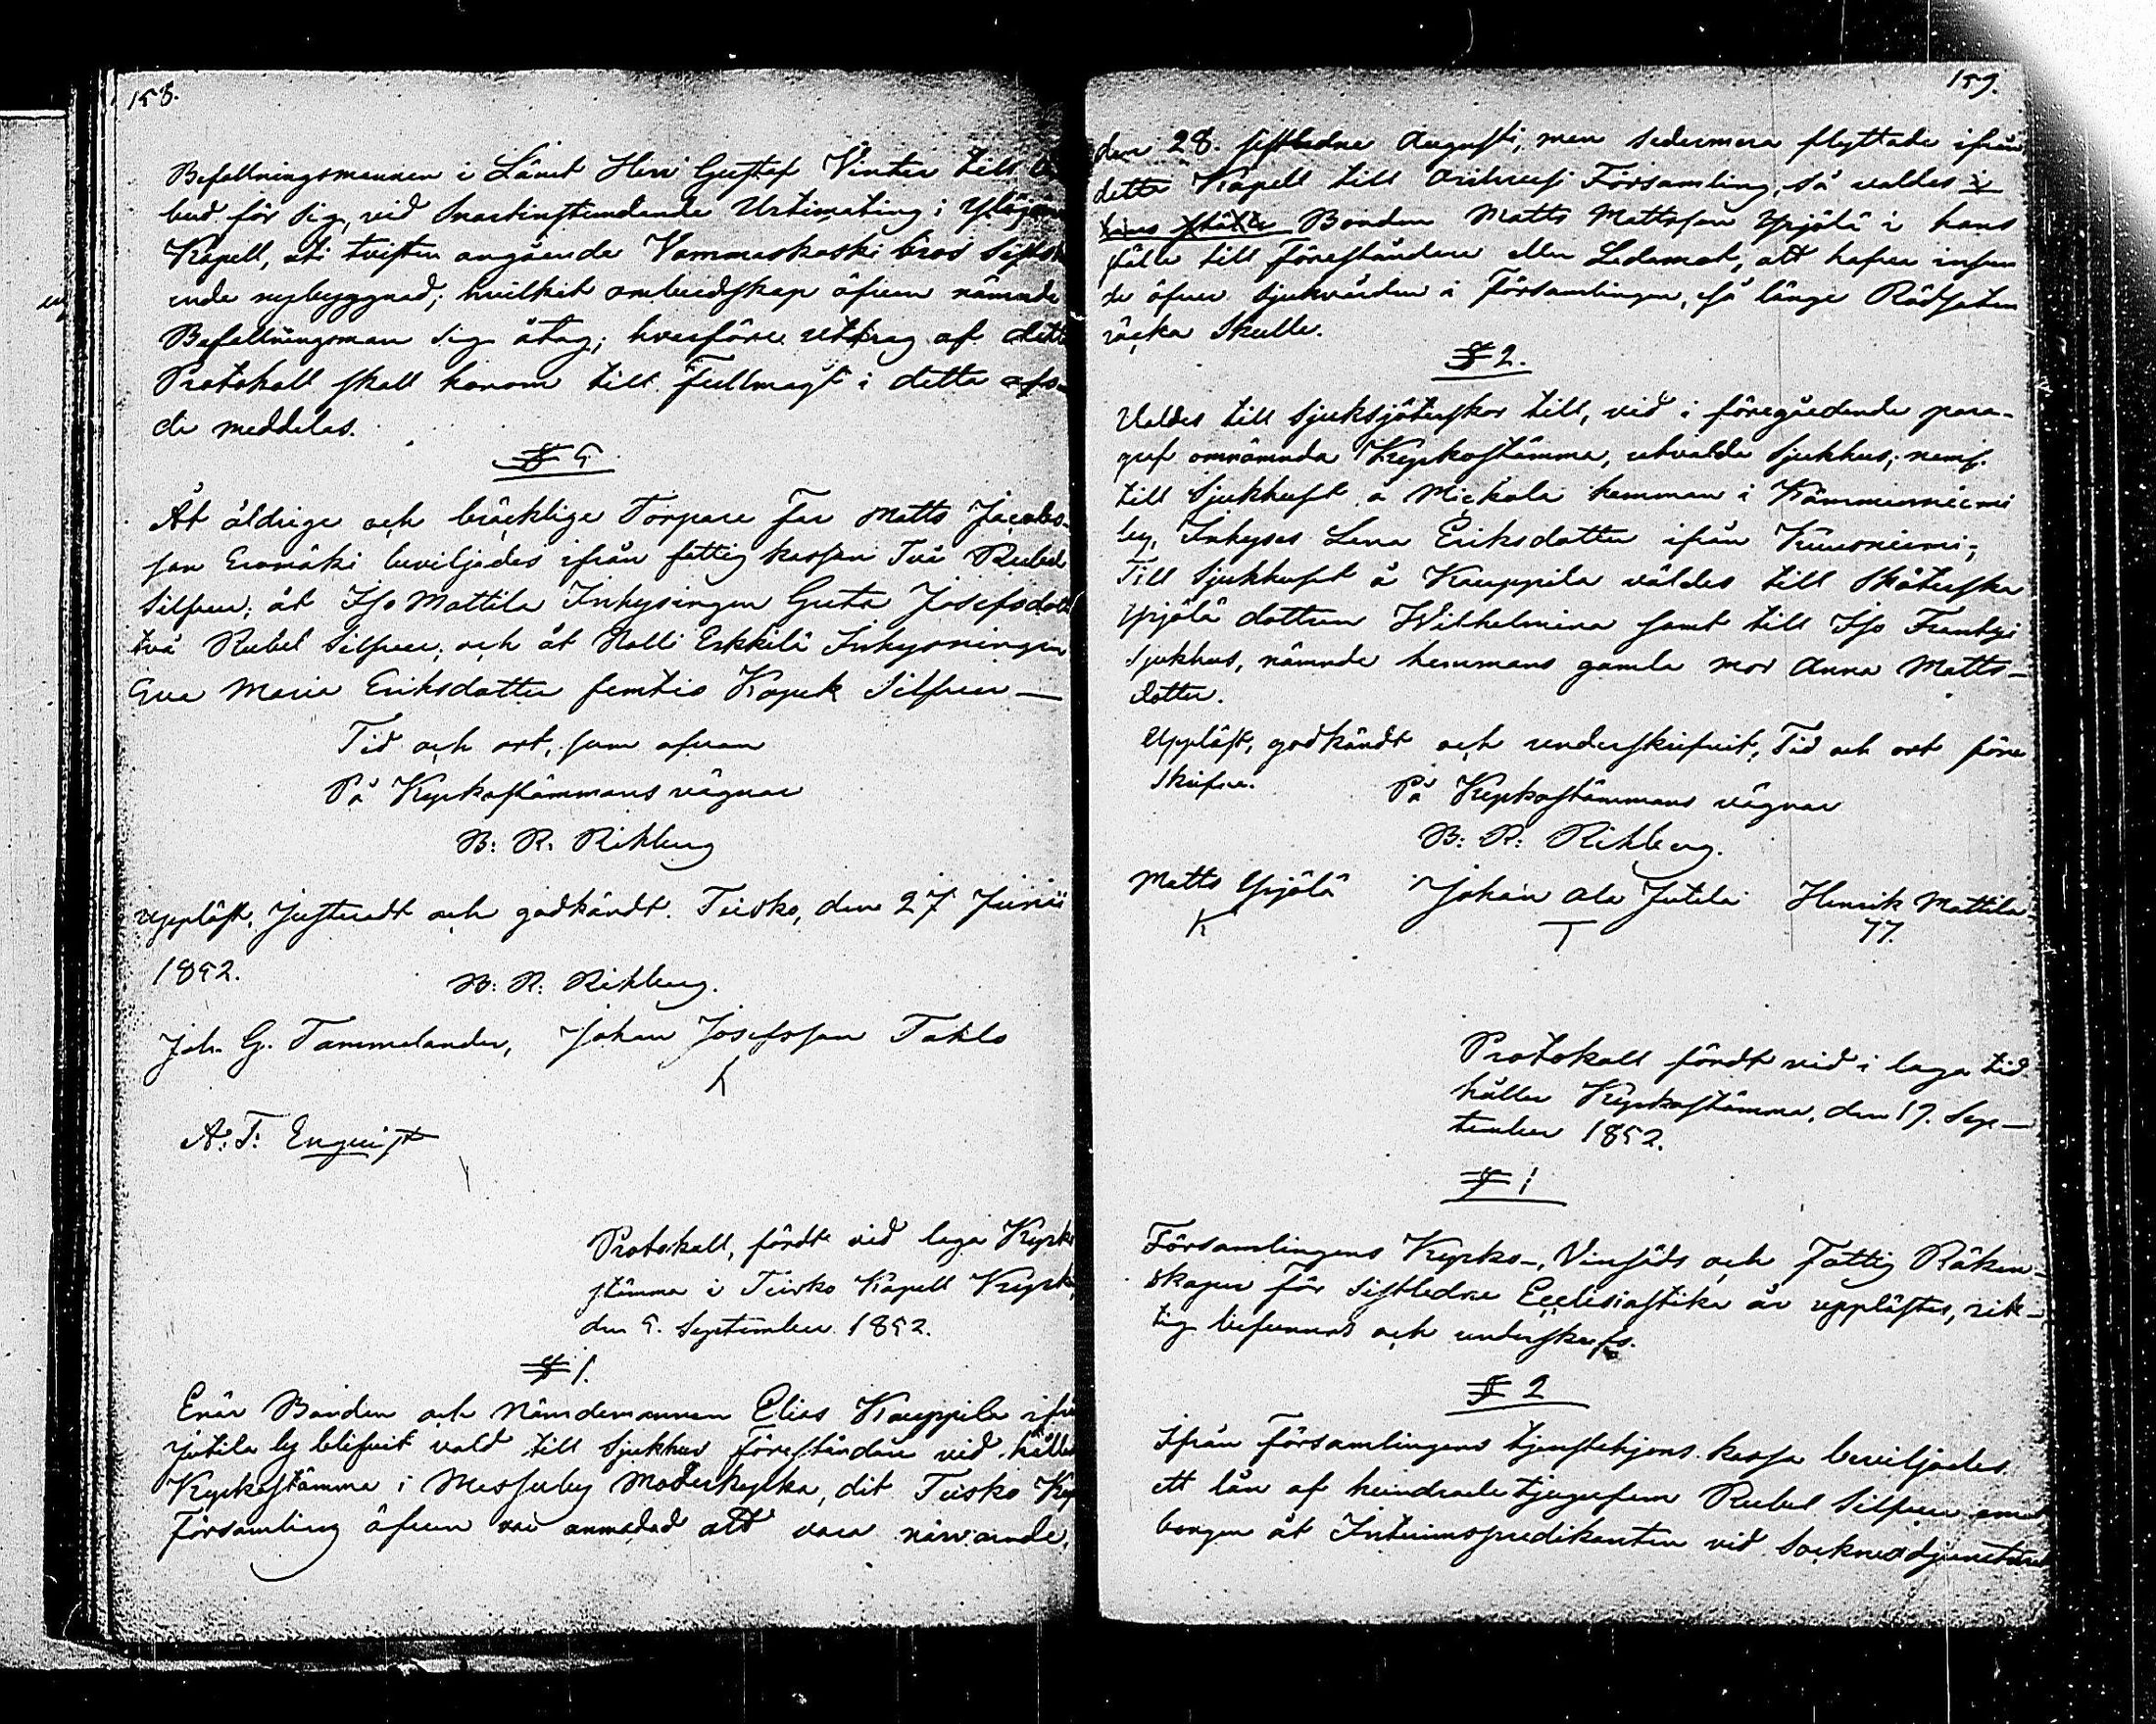 158.
Befallningsmannen i Länet Herr Gustaf Vinter till
bud för sig, vid snart instundande Urtimating i Ylöjärvi
Kapell, uti tvisten angående Vammaskoski bros
ende nybyggnad; hvilket ombudskap äfven nämnde
Befallningsman sig åtog; hvarföre utdrag af detta
Protokoll skall honom till Fullmagt i detta afse-
de meddelas.
§ 5
Åt åldrige och bräcklige Torpare Far Matts Jacobs-
son Eromäki beviljades ifrån fattig kassan Två Rubel
Silfver; åt Iso Mattila Inhysingen Greta Josefsdotter
två Rubel Silfver; och åt Nalli Erkkilä Inhysningen
Eva Maria Eriksdotter femtio Kopek Silfver —
Tid och ort, som ofvan
På Kyrkostämmans vägnar
B: R: Rihberg
Uppläst, Justeradt och godkändt. Teisko, den 27 Junii
1852.
B: R: Rihberg.
Joh. G. Tammelander, Johan Josefsson Tahlo
A: F: Enquist
Protokoll, fördt vid laga Kyrko
stämma i Teisko Kapell Kyrka,
den 5. September 1852.
§ 1.
Enär Bonden och Nämdemannen Elias Kauppila ifrån
Jutila by blifvit vald till Sjukhus Föreståndare vid hållen
Kyrkostämma i Messuby Moderkyrka, dit Teisko Kap
Församling äfven var anmodad att vara närvarande,
159.
den 28. sistledne Augusti, men sedermera flyttade ifrån
detta Kapell till Orihvesi Församling, så valdes i
hans ställe Bonden Matts Mattsson Yrjölä i hans
ställe till Föreståndare eller Ledamot, att hafva inseen
de öfver sjukvården i Församlingen, så länge Rödsoten
räcka skulle.
§ 2.
Valdes till Sjuksjöterskor till, vid i föregående para-
graf omnämnda Kyrkostämma, utvalda Sjukhus; neml.
till Sjukhuset å Mickola hemman i Kämmenniemi
by, Inhyses Lena Eriksdotter ifrån Kämmenniemi;
Till Sjukhuset å Kauppila valdes till Sköterska
Yrjölä dottren Wilhelmina samt till Iso Frantsi
Sjukhus, nämnde hemmans gamla mor Anna Matts-
dotter.
Uppläst, godkändt och underskrifvit, Tid och ort före
skrifne.
På Kyrkostämmans vägnar
B: R: Rihberg.
Matts Yrjölä Johan Ala Jutila Henrik Mattila
Protokoll fördt vid i laga tid
hållen Kyrkostämma, den 19. Sep-
tember 1852.
§ 1
Församlingens Kyrko-, Vinsäds och Fattig Räken-
skaper för sistledne Ecclesiastika år upplästes, rik-
tig befunnos och underskrefs.
§ 2
Ifrån Församlingens tjenstehjons kassa beviljades
ett lån af hundrade tjugufem Rubel Silfver emot
borgen åt Interimspredikanten vid Sockneadjuncturen